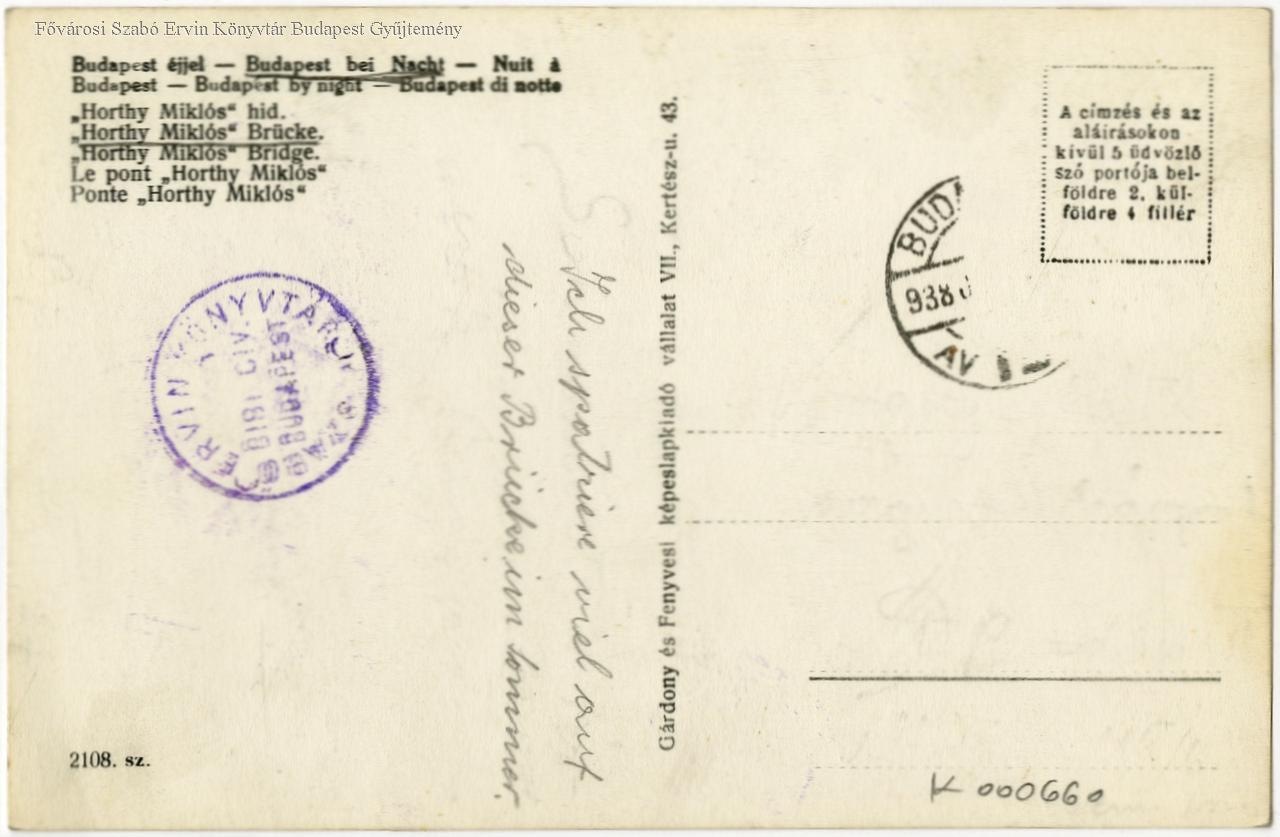 Fővárosi Szabó Ervin Könyvtár Budapest Gyűjtemény
Budapest éjjel — Budapest bei Nacht — Nuit à
Budapest — Budapest by night — Budapest di notte
„Horthy Miklós“ hid.
„Horthy Miklós“ Brücke.
„Horthy Miklós“ Bridge.
Le pont „Horthy Miklós“
Ponte „Horthy Miklós“
ERVIN KÖNYVTÁR
BUDAPEST
Ich spatziere viel auf
dieser Brücke im Sommer.
Gárdony és Fenyvesi képeslapkiadó vállalat VII., Kertész-u. 43.
A címzés és az
aláirásokon
kivül 5 üdvözlő
szó portója bel-
földre 2, kül-
földre 4 fillér
BUDA
938
ÁV
2108. sz.
K 000660